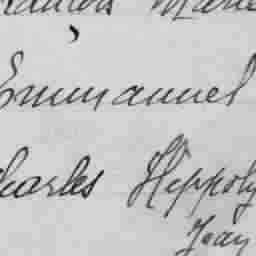 Marie
Emmanuel
Charles Hippoly
Jean